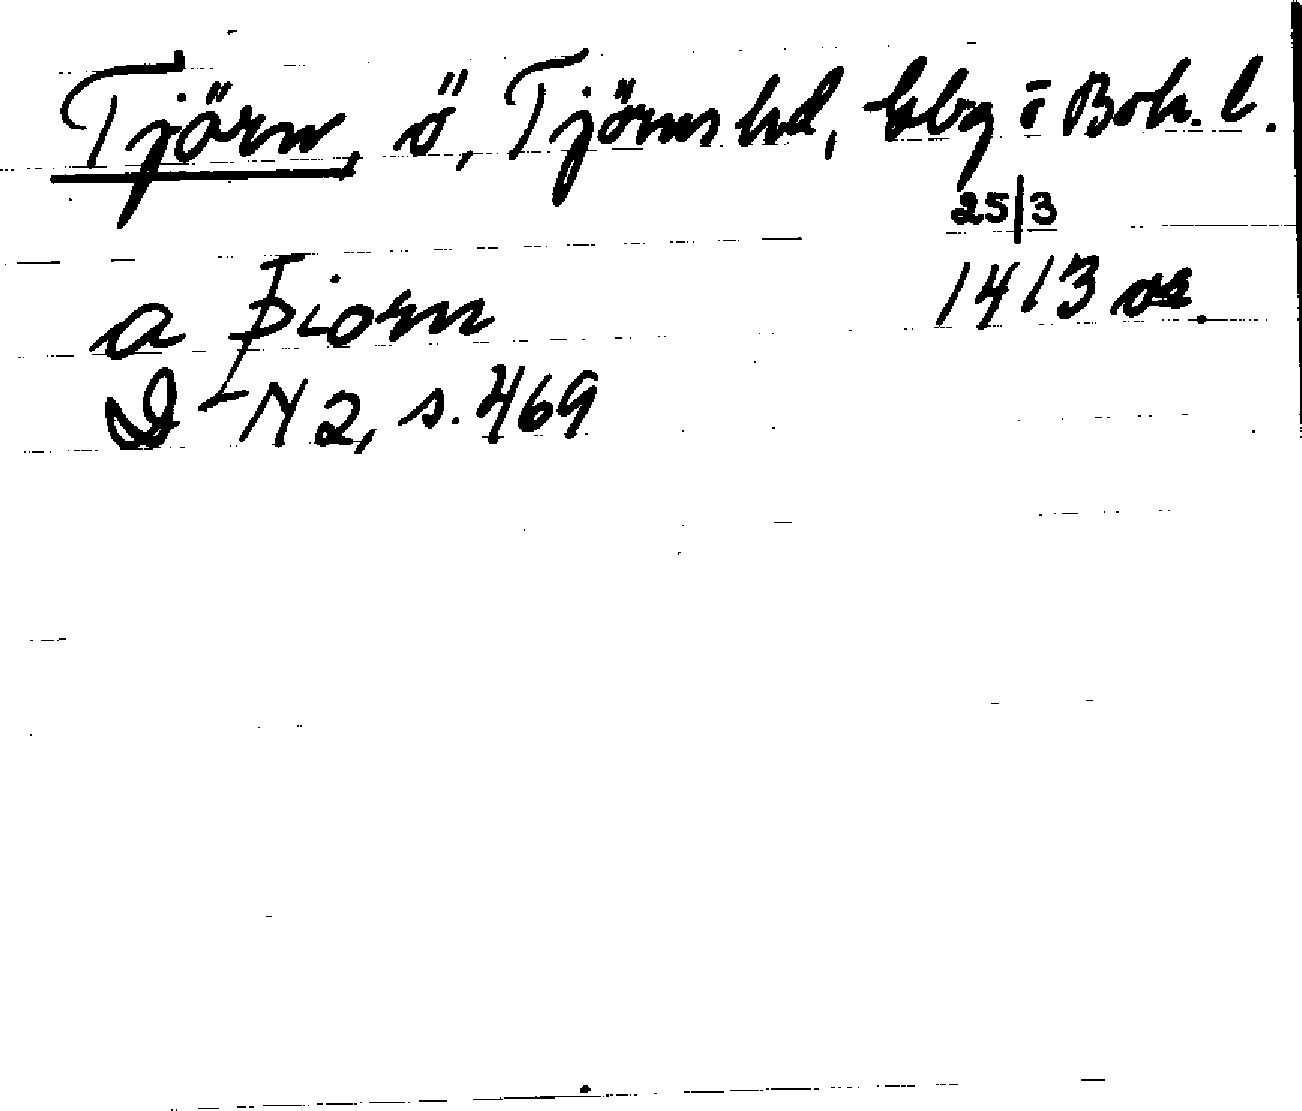 Tjörn, ö, Tjörns hd, bbg i Boh. l.
25/3
a Þiorn 1413 or.
DN 2, s. 469